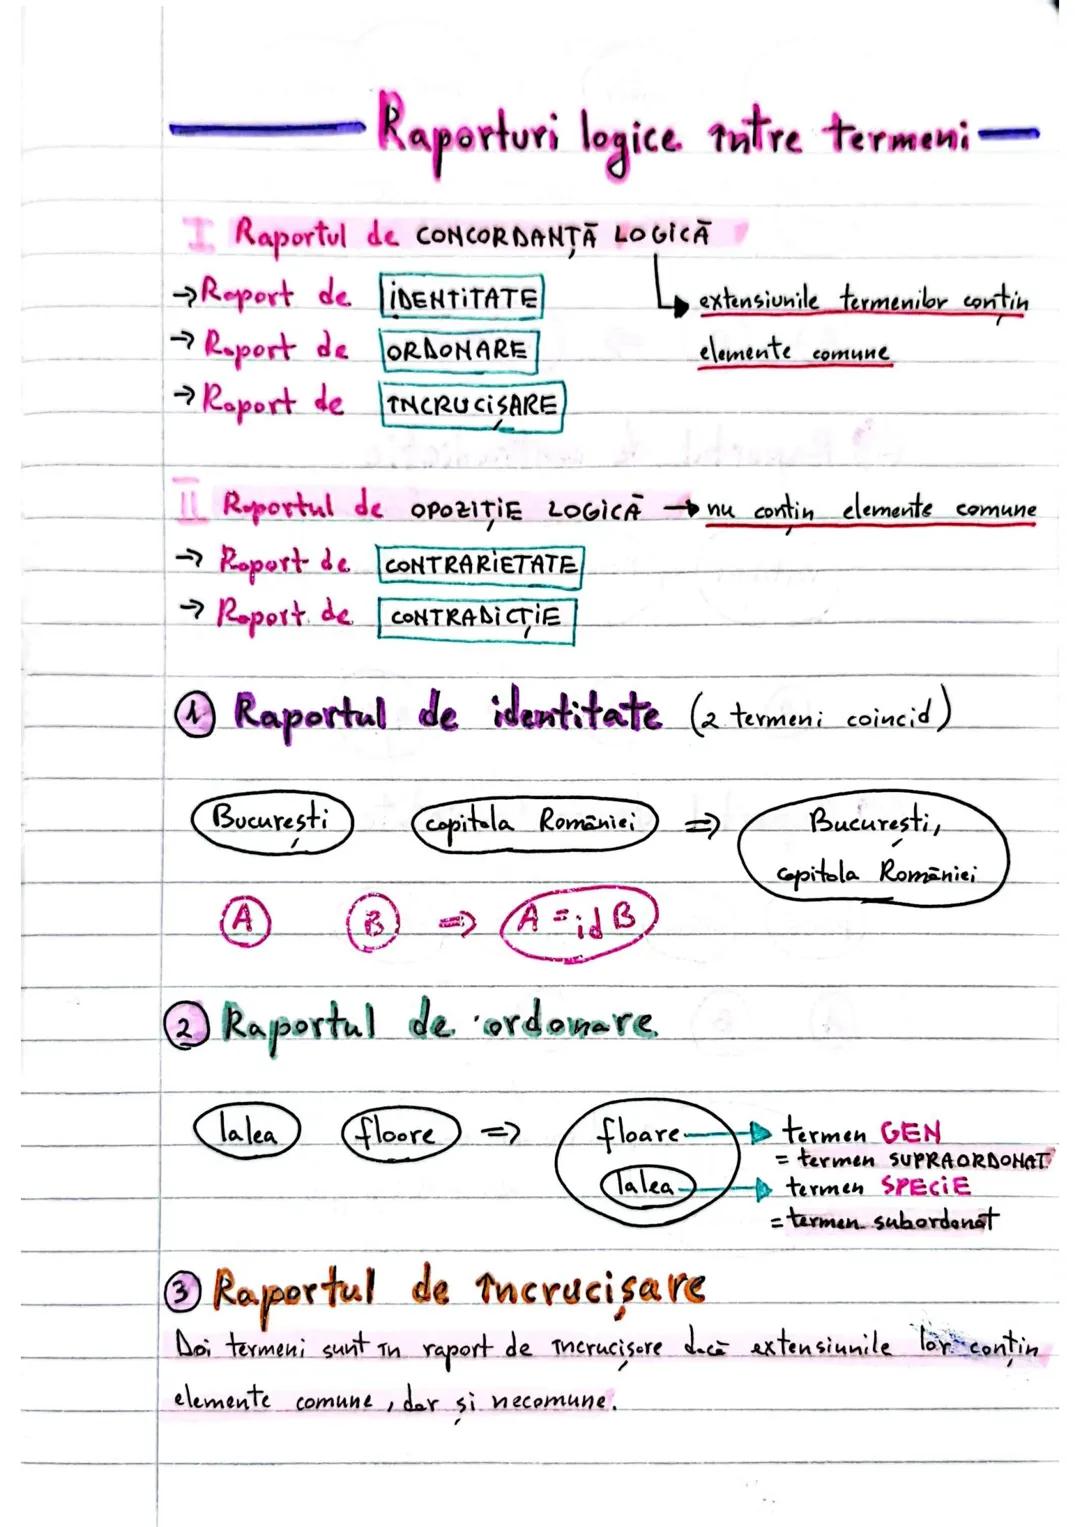 Raporturi logice între termeni
I Raportul de CONCORDANȚĂ LOGICĂ
→ Raport de IDENTITATE
extensiunile termenilor conțin
→ Raport de ORDONARE
elemente comune
→ Raport de ÎNCRUCIȘARE
II Raportul de OPOZIȚIE LOGICĂ → nu conțin elemente comune
→ Raport de CONTRARIETATE
→ Raport de CONTRADICȚIE
1 Raportul de identitate (2 termeni coincid)
București capitala României => București,
capitala României
A B => A = id B
2 Raportul de ordonare
lalea floare => floare termen GEN
= termen SUPRAORDONAT
lalea termen SPECIE
= termen subordonat
3 Raportul de încrucișare
Doi termeni sunt în raport de încrucișare dacă extensiunile lor conțin
elemente comune, dar și necomune.